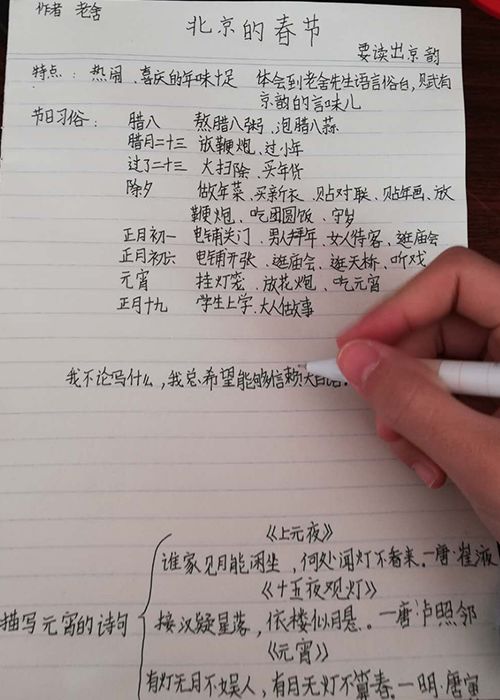 作者 老舍
北京的春节
要读出京韵
特点：热闹、喜庆的年味十足 体会到老舍先生语言俗白，
京韵的言味儿
节日习俗： 腊八 熬腊八粥、泡腊八蒜
腊月二十三 放鞭炮、过小年
过了二十三 大扫除、买年货
除夕 做年菜、买新衣、贴对联、贴年画、放
鞭炮、吃团圆饭、守岁
正月初一 铺关门、男人拜年、女人待客、逛庙会
正月初六 铺开张、逛庙会、逛天桥、听戏
元宵 挂灯笼、放花炮、吃元宵
正月十九 学生上学、大人做事
我不论写什么，我总希望能够信赖大白话
《上元夜》
谁家见月能闲坐，何处闻灯不看来。—唐·崔液
《十五夜观灯》
描写元宵的诗句 接汉疑星落，依楼似月悬。—唐·卢照邻
《元宵》
有灯无月不娱人，有月无灯不算春—明·唐寅